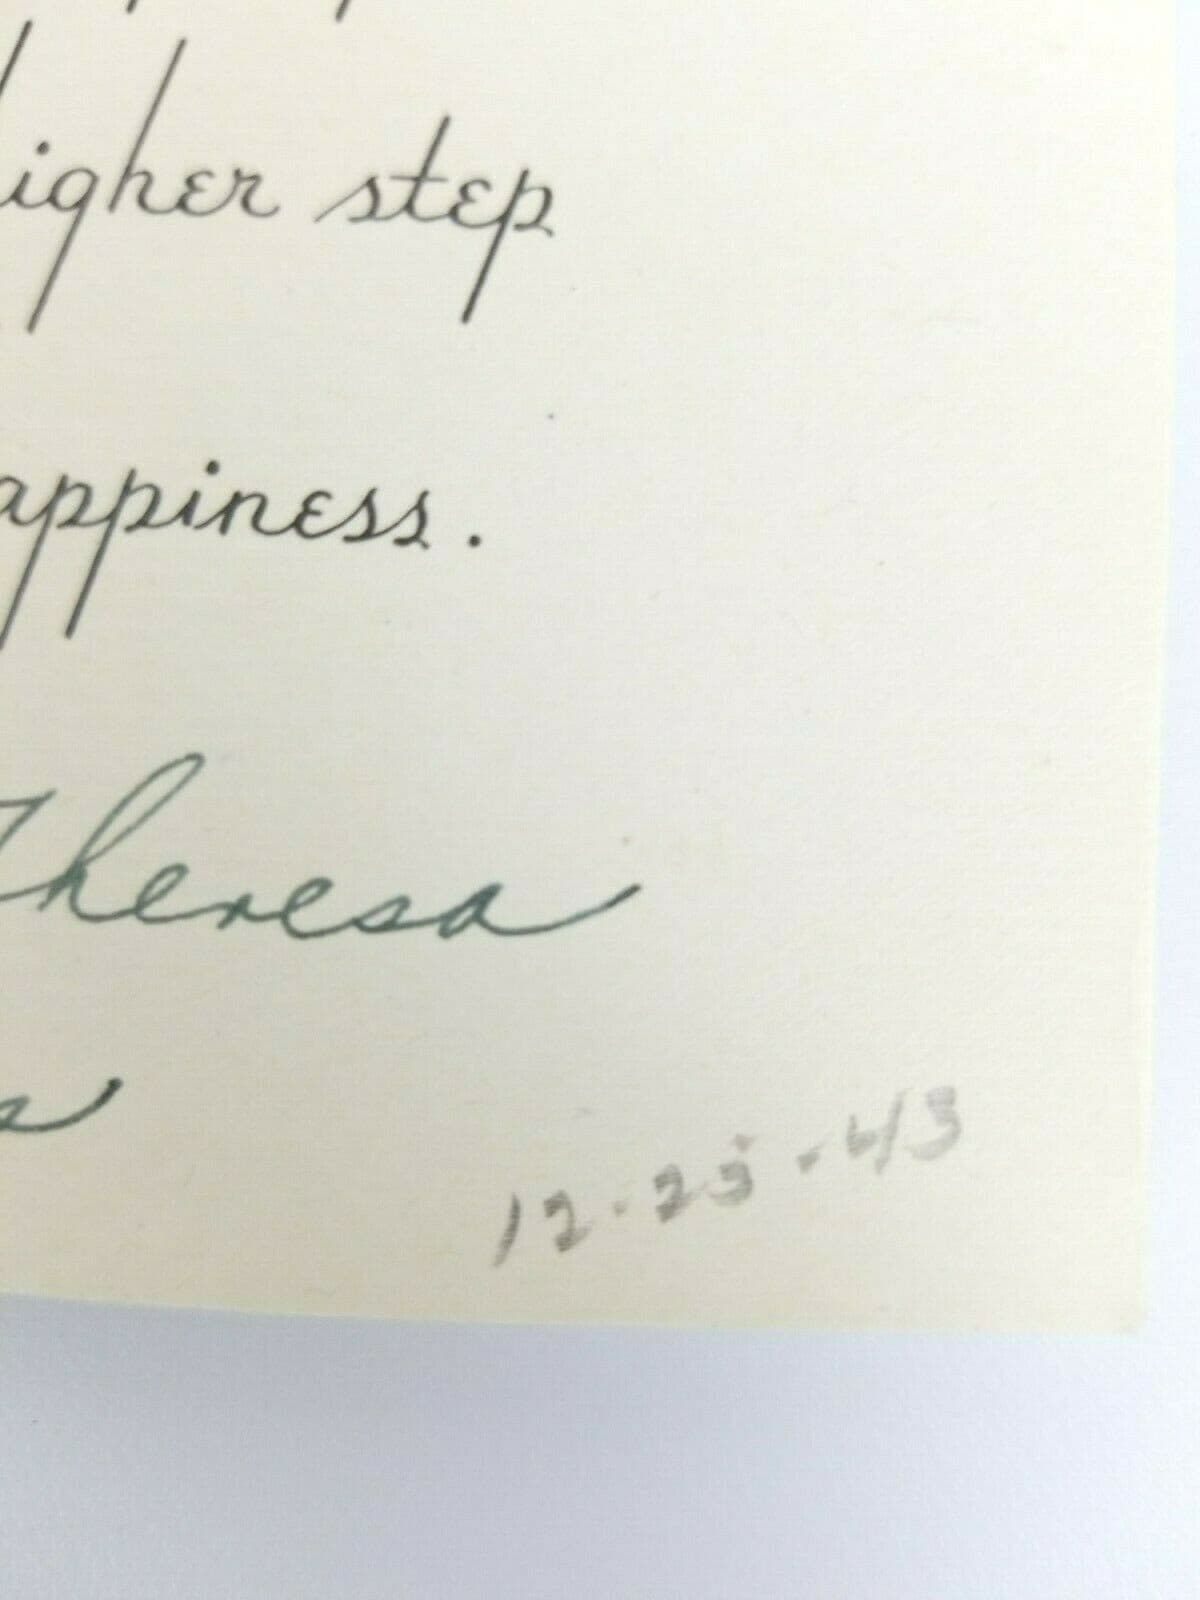 igher step
appiness.
Theresa
12-23-43